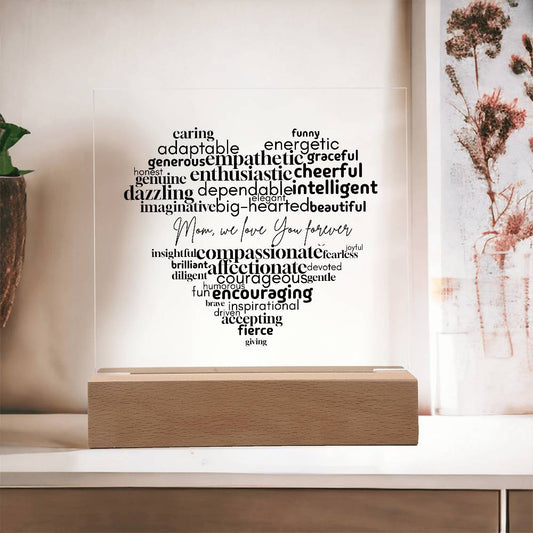 caring funny
adaptable energetic
generous empathetic graceful
honest enthusiastic cheerful
genuine dependable intelligent
dazzling elegant
imaginative big-hearted beautiful
Mom, we love You forever
insightful compassionate fearless joyful
brilliant affectionate devoted
diligent courageous gentle
humorous
fun encouraging
brave inspirational
driven accepting
fierce
giving